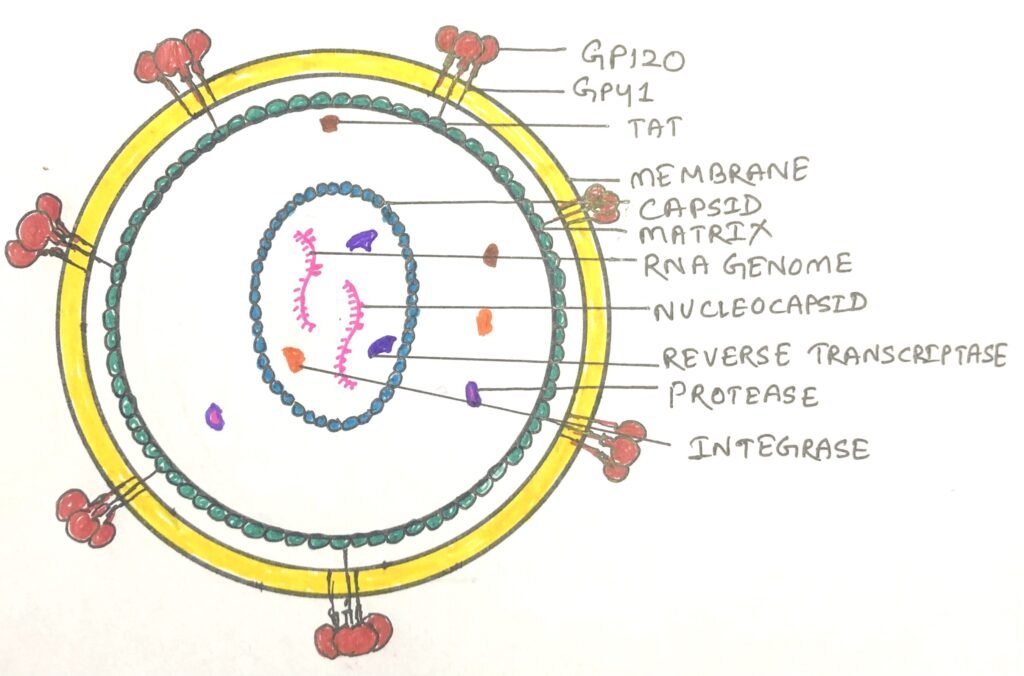 GP120
GP41
TAT
MEMBRANE
CAPSID
MATRIX
RNA GENOME
NUCLEOCAPSID
REVERSE TRANSCRIPTASE
PROTEASE
INTEGRASE